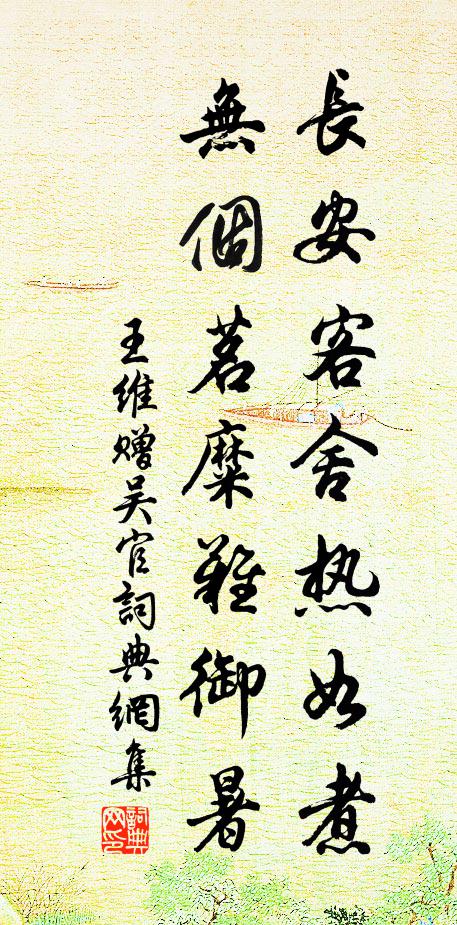 長安客舍热如煮
無個茗糜難御暑
王維贈吴官詞典網集
詞典
网印